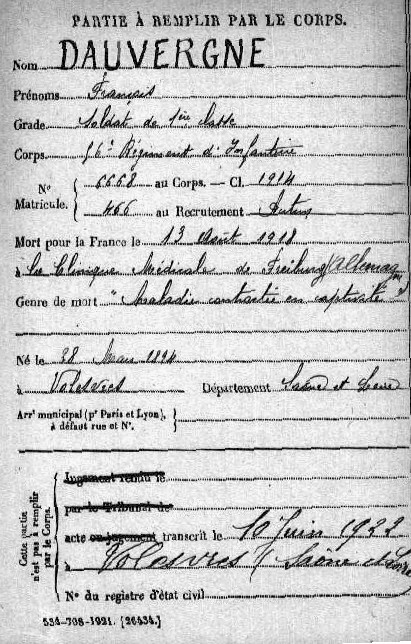 PARTIE À REMPLIR PAR LE CORPS.
Nom DAUVERGNE
Prénoms François
Grade Soldat de 1ère classe
Corps 56e Régiment d'Infanterie
N° Matricule. { 6668 au Corps. — Cl. 1914
466 au Recrutement Autun
Mort pour la France le 13 Août 1918
à la Clinique Médicale de Freiburg (Allemagne)
Genre de mort "Maladie contractée en captivité"
Né le 28 Mars 1894
à Volesvres Département Saône et Loire
Arrt municipal (pr Paris et Lyon), à défaut rue et N°. }
Cette partie n'est pas à remplir par le Corps.
Jugement rendu le
par le Tribunal de
acte ou jugement transcrit le 10 Juin 1922
à Volesvres (Saône et Loire)
N° du registre d'état civil
534-708-1921. [26434.]